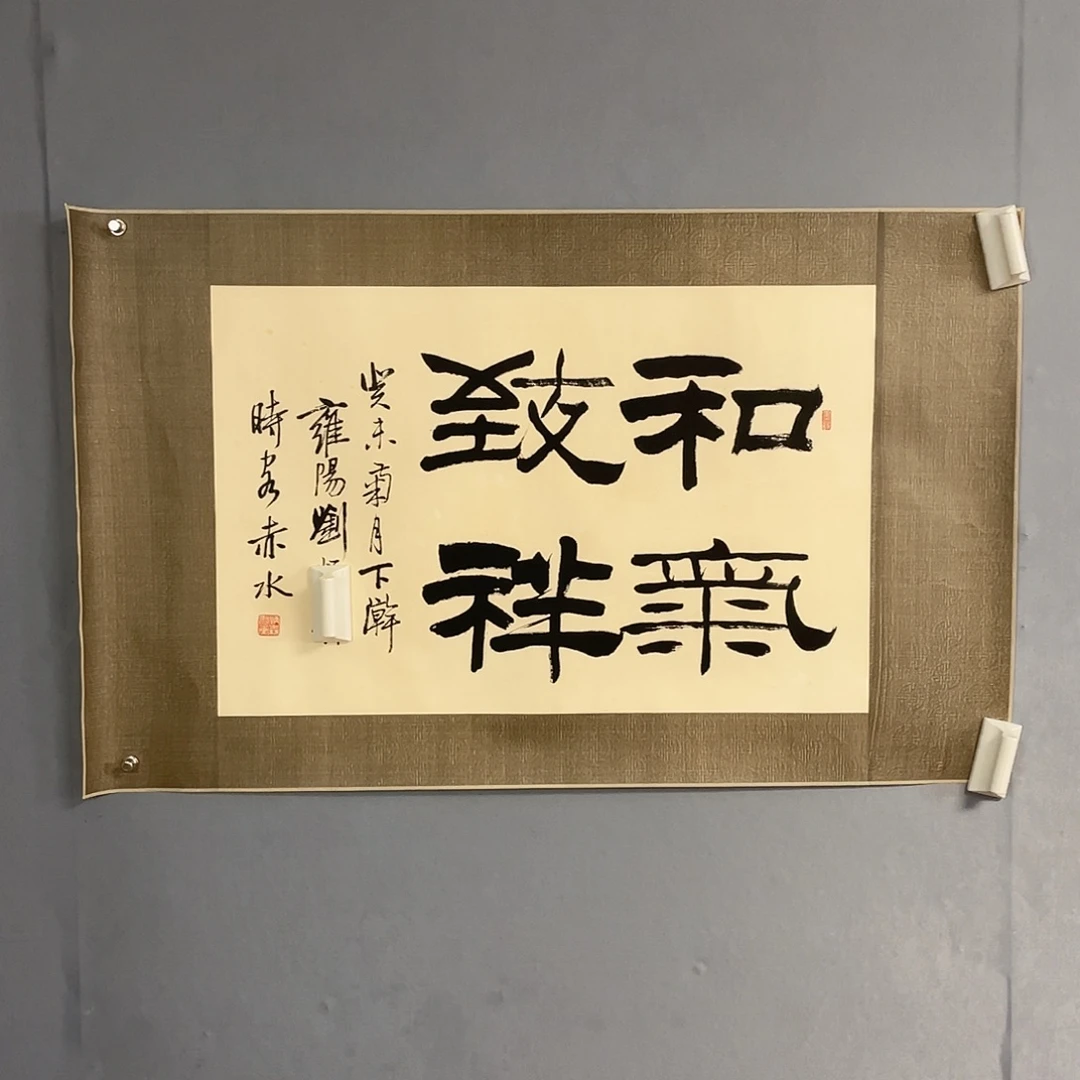 和氣
致祥
癸未菊月下澣
雍陽劉
時客赤水